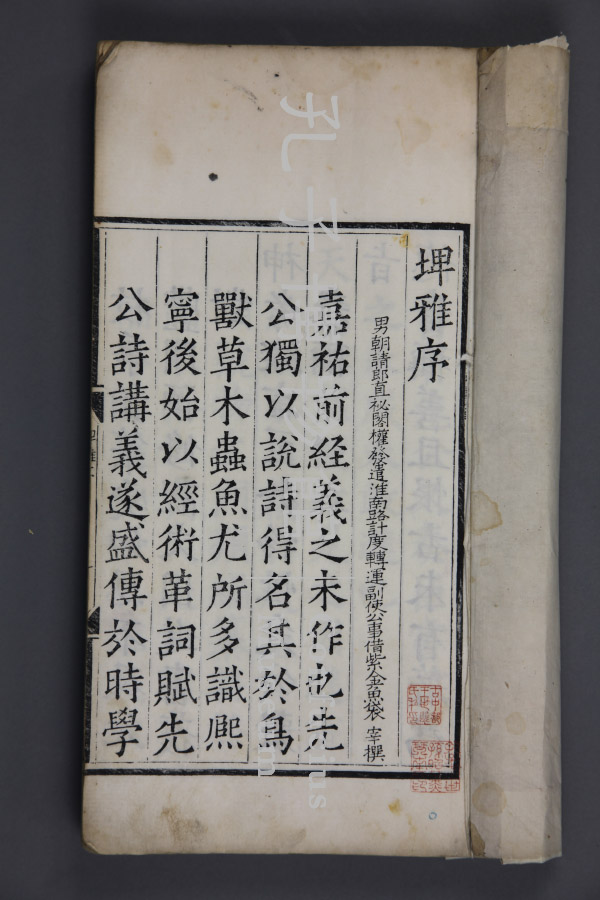 埤雅序
男朝請郎直祕閣權發遣淮南路計度轉運副使公事借紫金魚袋 宰撰
嘉祐前經義之未作也先
公獨以說詩得名其於鳥
獸草木蟲魚尤所多識熈
寧後始以經術革詞賦先
公詩講義遂盛傳於時學
孔子